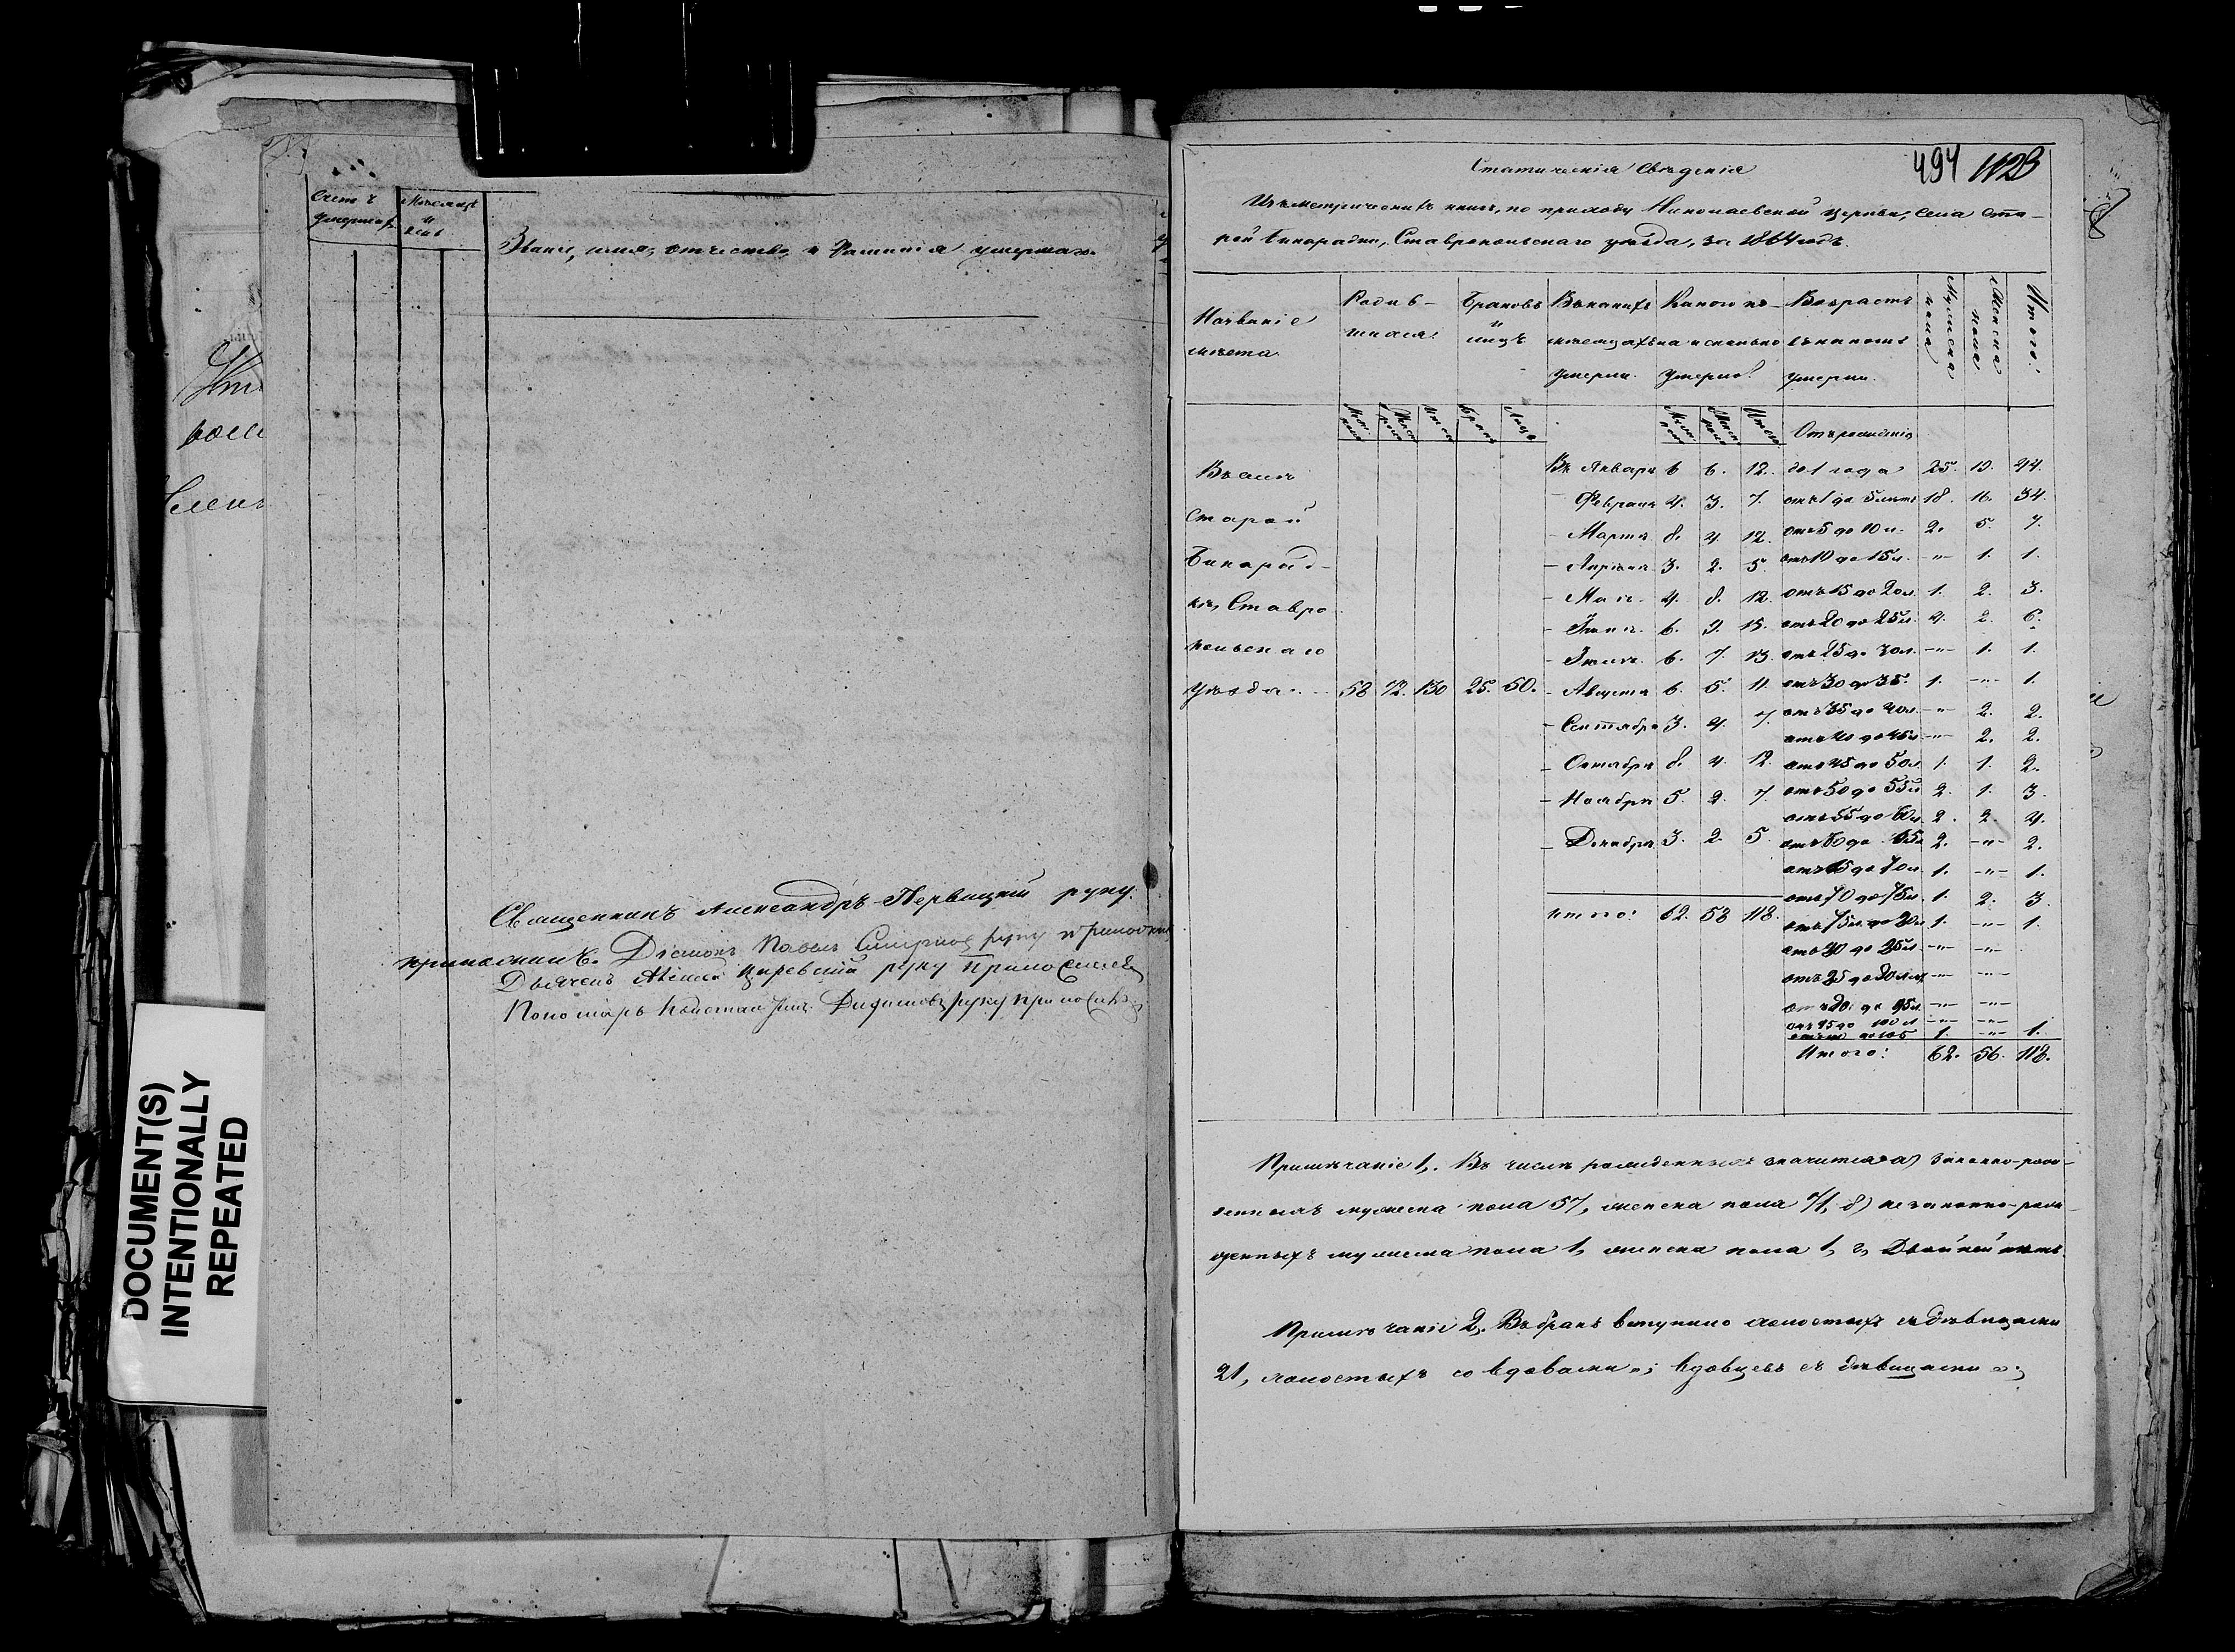 Счетъ
умершихъ
Мѣсяцъ
и
день
Званіе, имя, отчество, и Фамилія умершаго.
Священникъ Александръ Первицкій руку
приложилъ. Діаконъ Павелъ Смирновъ руку приложилъ
Дьячекъ Алексѣй Царевскій руку приложилъ
Пономарь Константинъ руку приложилъ
DOCUMENT(S)
INTENTIONALLY
REPEATED
494 1128
Статическія Свѣденія
Изъ метрическихъ книгъ, по приходу Николаевской церкви, села Ста-
рой Бинарадки, Ставропольскаго уѣзда, за 1864 годъ.
Названіе
мѣста
Родив-
шихся
Браковъ
и
лицъ
Въ какихъ
мѣсяцахъ
умерли.
Какого по-
ла и сколько
умерло.
Возрастъ
въ какомъ
умерли.
Мужеска
пола
Женска
пола
Итого:
Отъ рожденія
Въ Январѣ 6 6. 12. до 1 года 25. 19. 44.
Февралѣ 4. 3. 7. отъ 1 до 5 лѣтъ 18. 16. 34.
Мартѣ 8. 4. 12. отъ 5 до 10 л. 2. 5. 7.
Апрѣлѣ 3. 2. 5. отъ 10 до 15 л. -"- 1. 1.
Маѣ 4. 8. 12. отъ 15 до 20 л. 1. 2. 3.
Іюнѣ 6. 9. 15. отъ 20 до 25 л. 4. 2. 6.
Іюлѣ 6. 7. 13. отъ 25 до 30 л. -"- 1. 1.
Въ селѣ
Старой
Бинарад-
кѣ, Ставро
польскаго
уѣзда 58 72. 130 25. 50. Августѣ 6. 5. 11. отъ 30 до 35. 1. -"- 1.
Сентябрѣ 3. 4. 7. отъ 35 до 40 л. -"- 2. 2.
отъ 40 до 45 л. -"- 2. 2.
Октябрѣ 8. 4. 12. отъ 45 до 50 л. 1. 1. 2.
Ноябрѣ 5. 2. 7. отъ 50 до 55 л. 2. 1. 3.
отъ 55 до 60 л. 2. 2. 4.
Декабрѣ 3. 2. 5. отъ 60 до 65 л. 2. -"- 2.
отъ 65 до 70 л. 1. -"- 1.
отъ 70 до 75 л. 1. 2. 3.
итого: 62. 56 118. отъ 75 л. до 80 л. 1. -"- 1.
отъ 80 до 85 л. -"- -"-
отъ 85 до 90 -"- -"-
отъ 90 до 95 л. -"- -"-
отъ 95 до 100 л -"- -"-
отъ 100 до 105 1. -"- 1.
Итого: 62. 56. 118.
Примѣчаніе 1,. Въ числѣ рожденныхъ значится а) законно-рож-
денныхъ мужеска пола 57, женска пола 71, б) незаконно-рож-
денныхъ мужеска пола 1, женска пола 1, в, Двойней нѣтъ.
Примѣчаніе 2,. Въ бракъ вступило холостыхъ съ дѣвицами
21, холостыхъ со вдовами "; вдовцевъ съ дѣвицами ";